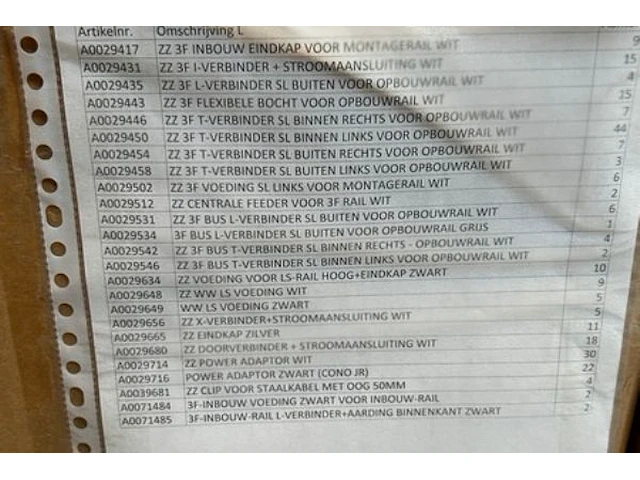 Artikelnr. Omschrijving L
A0029417 ZZ 3F INBOUW EINDKAP VOOR MONTAGERAIL WIT 9
A0029431 ZZ 3F I-VERBINDER + STROOMAANSLUITING WIT 15
A0029435 ZZ 3F L-VERBINDER SL BUITEN VOOR OPBOUWRAIL WIT 4
A0029443 ZZ 3F FLEXIBELE BOCHT VOOR OPBOUWRAIL WIT 15
A0029446 ZZ 3F T-VERBINDER SL BINNEN RECHTS VOOR OPBOUWRAIL WIT 7
A0029450 ZZ 3F T-VERBINDER SL BINNEN LINKS VOOR OPBOUWRAIL WIT 44
A0029454 ZZ 3F T-VERBINDER SL BUITEN RECHTS VOOR OPBOUWRAIL WIT 7
A0029458 ZZ 3F T-VERBINDER SL BUITEN LINKS VOOR OPBOUWRAIL WIT 3
A0029502 ZZ 3F VOEDING SL LINKS VOOR MONTAGERAIL WIT 6
A0029512 ZZ CENTRALE FEEDER VOOR 3F RAIL WIT 2
A0029531 ZZ 3F BUS L-VERBINDER SL BUITEN VOOR OPBOUWRAIL WIT 6
A0029534 3F BUS L-VERBINDER SL BUITEN VOOR OPBOUWRAIL GRIJS 1
A0029542 ZZ 3F BUS T-VERBINDER SL BINNEN RECHTS - OPBOUWRAIL WIT 4
A0029546 ZZ 3F BUS T-VERBINDER SL BINNEN LINKS VOOR OPBOUWRAIL WIT 2
A0029634 ZZ VOEDING VOOR LS-RAIL HOOG+EINDKAP ZWART 10
A0029648 ZZ WW LS VOEDING WIT 9
A0029649 WW LS VOEDING ZWART 5
A0029656 ZZ X-VERBINDER+STROOMAANSLUITING WIT 5
A0029665 ZZ EINDKAP ZILVER 11
A0029680 ZZ DOORVERBINDER + STROOMAANSLUITING WIT 18
A0029714 ZZ POWER ADAPTOR WIT 30
A0029716 POWER ADAPTOR ZWART (CONO JR) 22
A0039681 ZZ CLIP VOOR STAALKABEL MET OOG 50MM 4
A0071484 3F-INBOUW VOEDING ZWART VOOR INBOUW-RAIL 2
A0071485 3F-INBOUW-RAIL L-VERBINDER+AARDING BINNENKANT ZWART 2